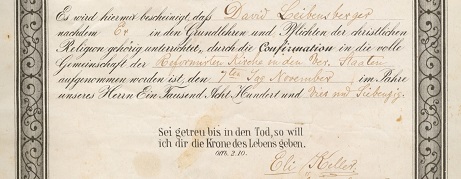 Es wird hiermit bescheinigt, daß David Leibensberger
nachdem Er in den Grundlehren und Pflichten der christlichen
Religion gehörig unterrichtet, durch die Confirmation in die volle
Gemeinschaft der Reformirten Kirche in den Ver. Staaten
aufgenommen worden ist, den 7ten Tag November im Jahre
unseres Herrn Ein Tausend Acht Hundert und Drei und Siebenzig.
Sei getreu bis in den Tod, so will
ich dir die Krone des Lebens geben.
Off. 2.10.
Eli Keller